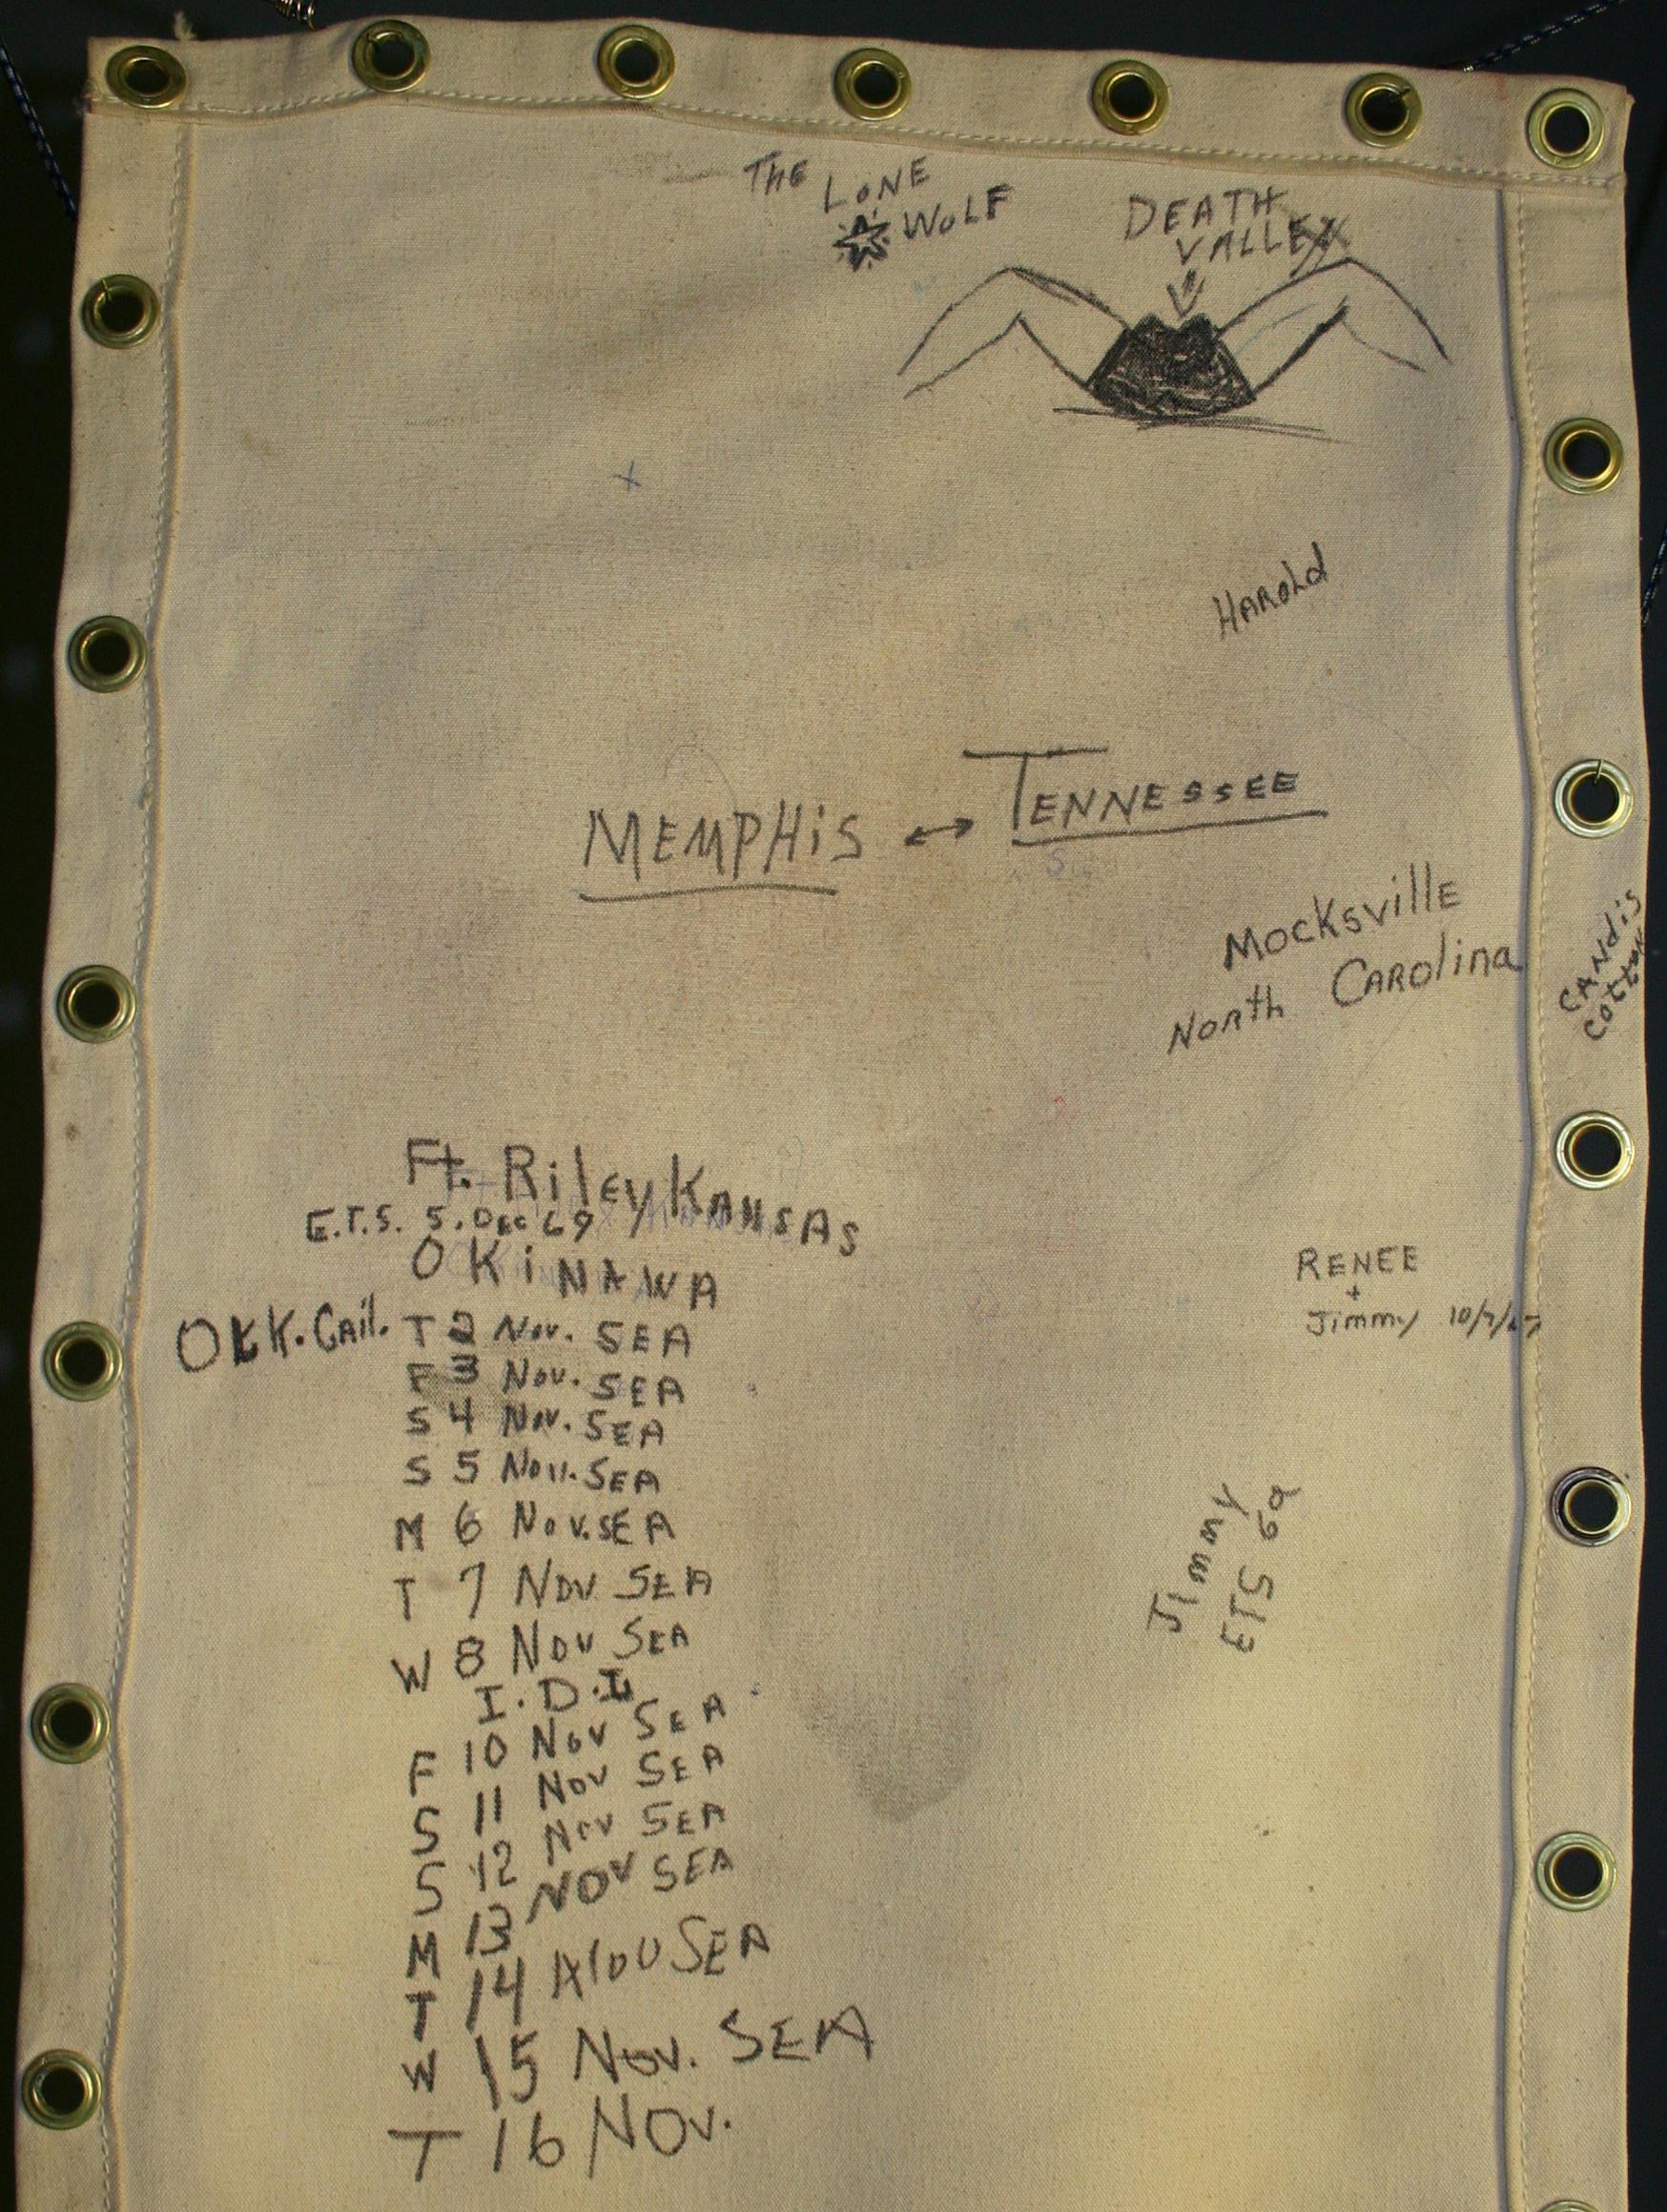 THE LONE
WOLF
DEATH
VALLEY
HAROLd
MEMPHiS ↔ TENNESSEE
MOCKSVillE
NORth CAROlina
CANdis
Cotton
Ft. RilEy KANSAS
E.T.S. 5. DEC 69
OKiNAWA
RENEE
+
Jimmy 10/7/67
OAK. Cail.
T 2 Nov. SEA
F 3 Nov. SEA
S 4 Nov. SEA
S 5 Nov. SEA
M 6 Nov. SEA
T 7 Nov SEA
W 8 Nov SEA
I.D.L
F 10 Nov SEA
S 11 Nov SEA
S 12 Nov SEA
M 13 NOV SEA
T 14 Nov SEA
W 15 Nov. SEA
T 16 Nov.
Jimmy
ETS 69